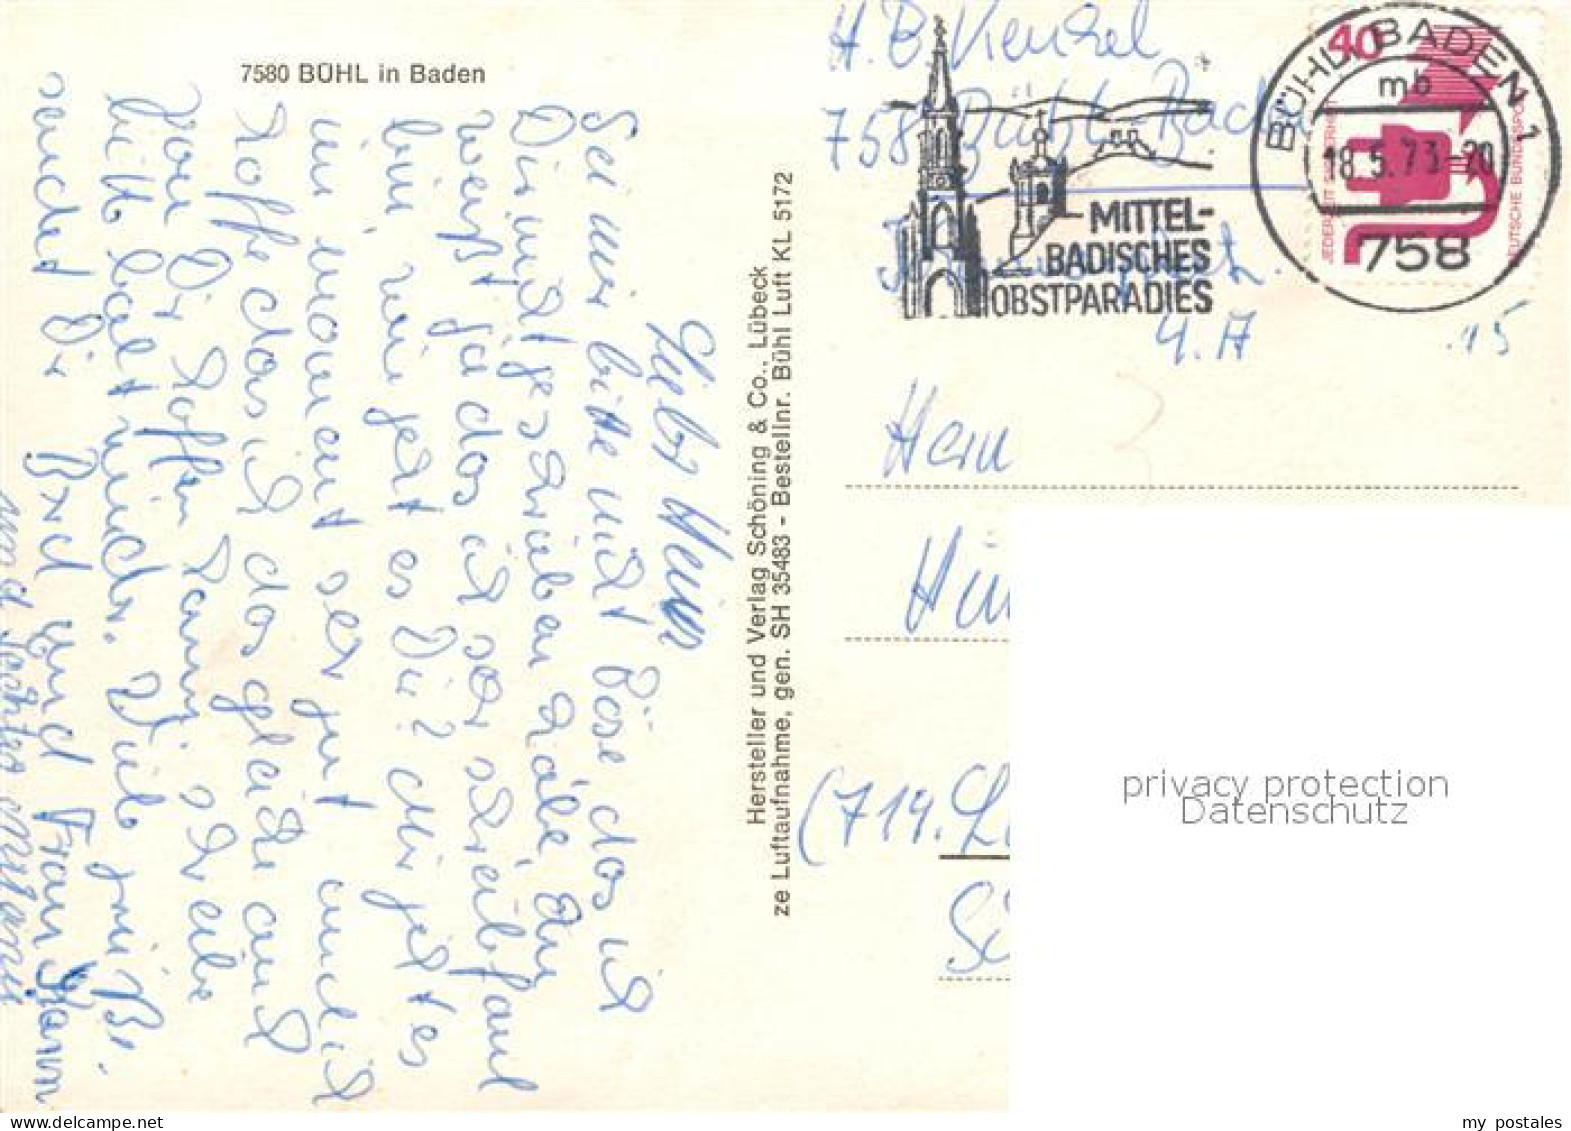 7580 BÜHL in Baden
Liebs Heinz
Sei mir bitte nicht Böse, das ich
Dir nicht geschrieben habe du
weißt ja das ich sor schreibfaul
bin wie jeht es Dir? Mir jeht es
im moment ser jut und ich
hoffe das ich das gleiche auch
von Dir hoffen kann. schreibe
bitte balt wieder. Viele jrüße
sendet Dir Brd und Frau Mann
und Tochter
Hersteller und Verlag Schöning & Co., Lübeck
ze Luftaufnahme, gen. SH 35483 - Bestellnr. Bühl Luft KL 5172
H. B. Kenzel
758 Bühl-Bad
4. A .15
MITTEL-
BADISCHES
OBSTPARADIES
BÜHL, BADEN 1
mb
18.5.73-20
758
40
JEDERZEIT SICHERHEIT
DEUTSCHE BUNDESPOST
Herrn
(714. L
privacy protection
Datenschutz
my postales